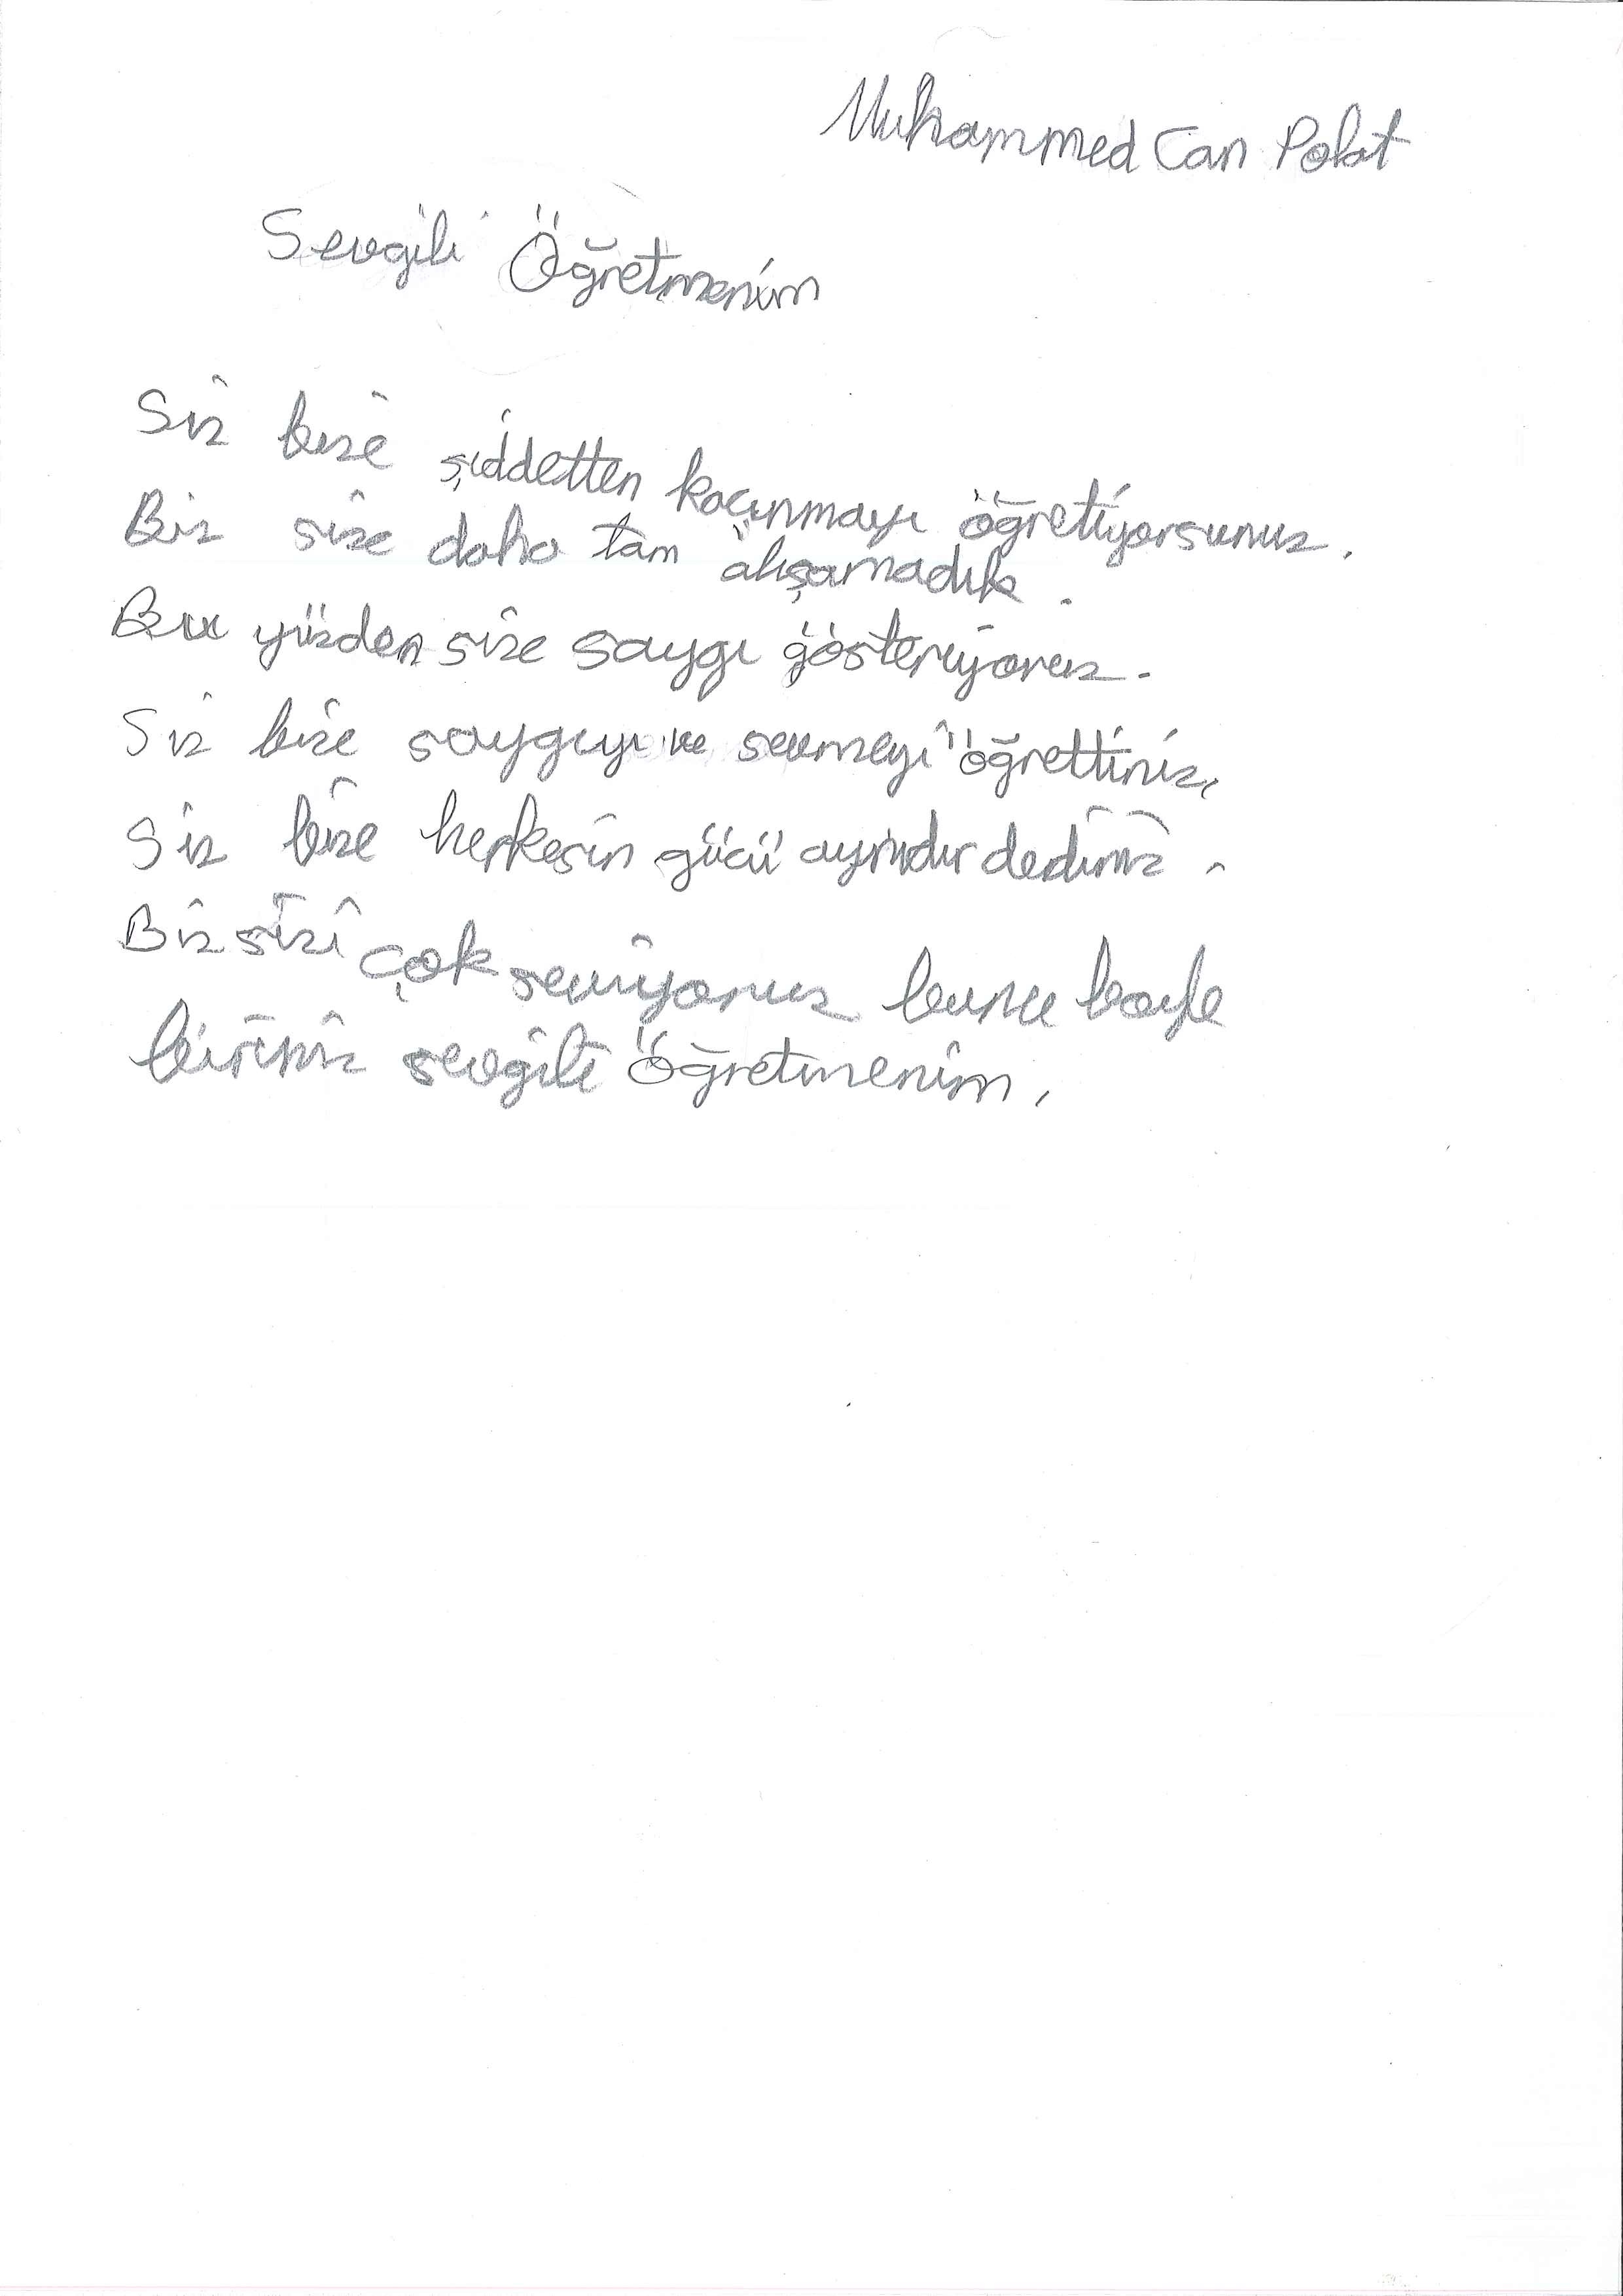 Muhammed Can Polat
Sevgili Öğretmenim
Siz bize şiddetten kaçınmayı öğretiyorsunuz.
Biz size daha tam alışamadık.
Bu yüzden size saygı gösteriyoruz.
Siz bize saygıyı ve sevmeyi öğrettiniz,
Siz bize herkesin gücü ayrıdır dediniz.
Biz sizi çok seviyoruz bunu boyle
biliniz sevgili öğretmenim,